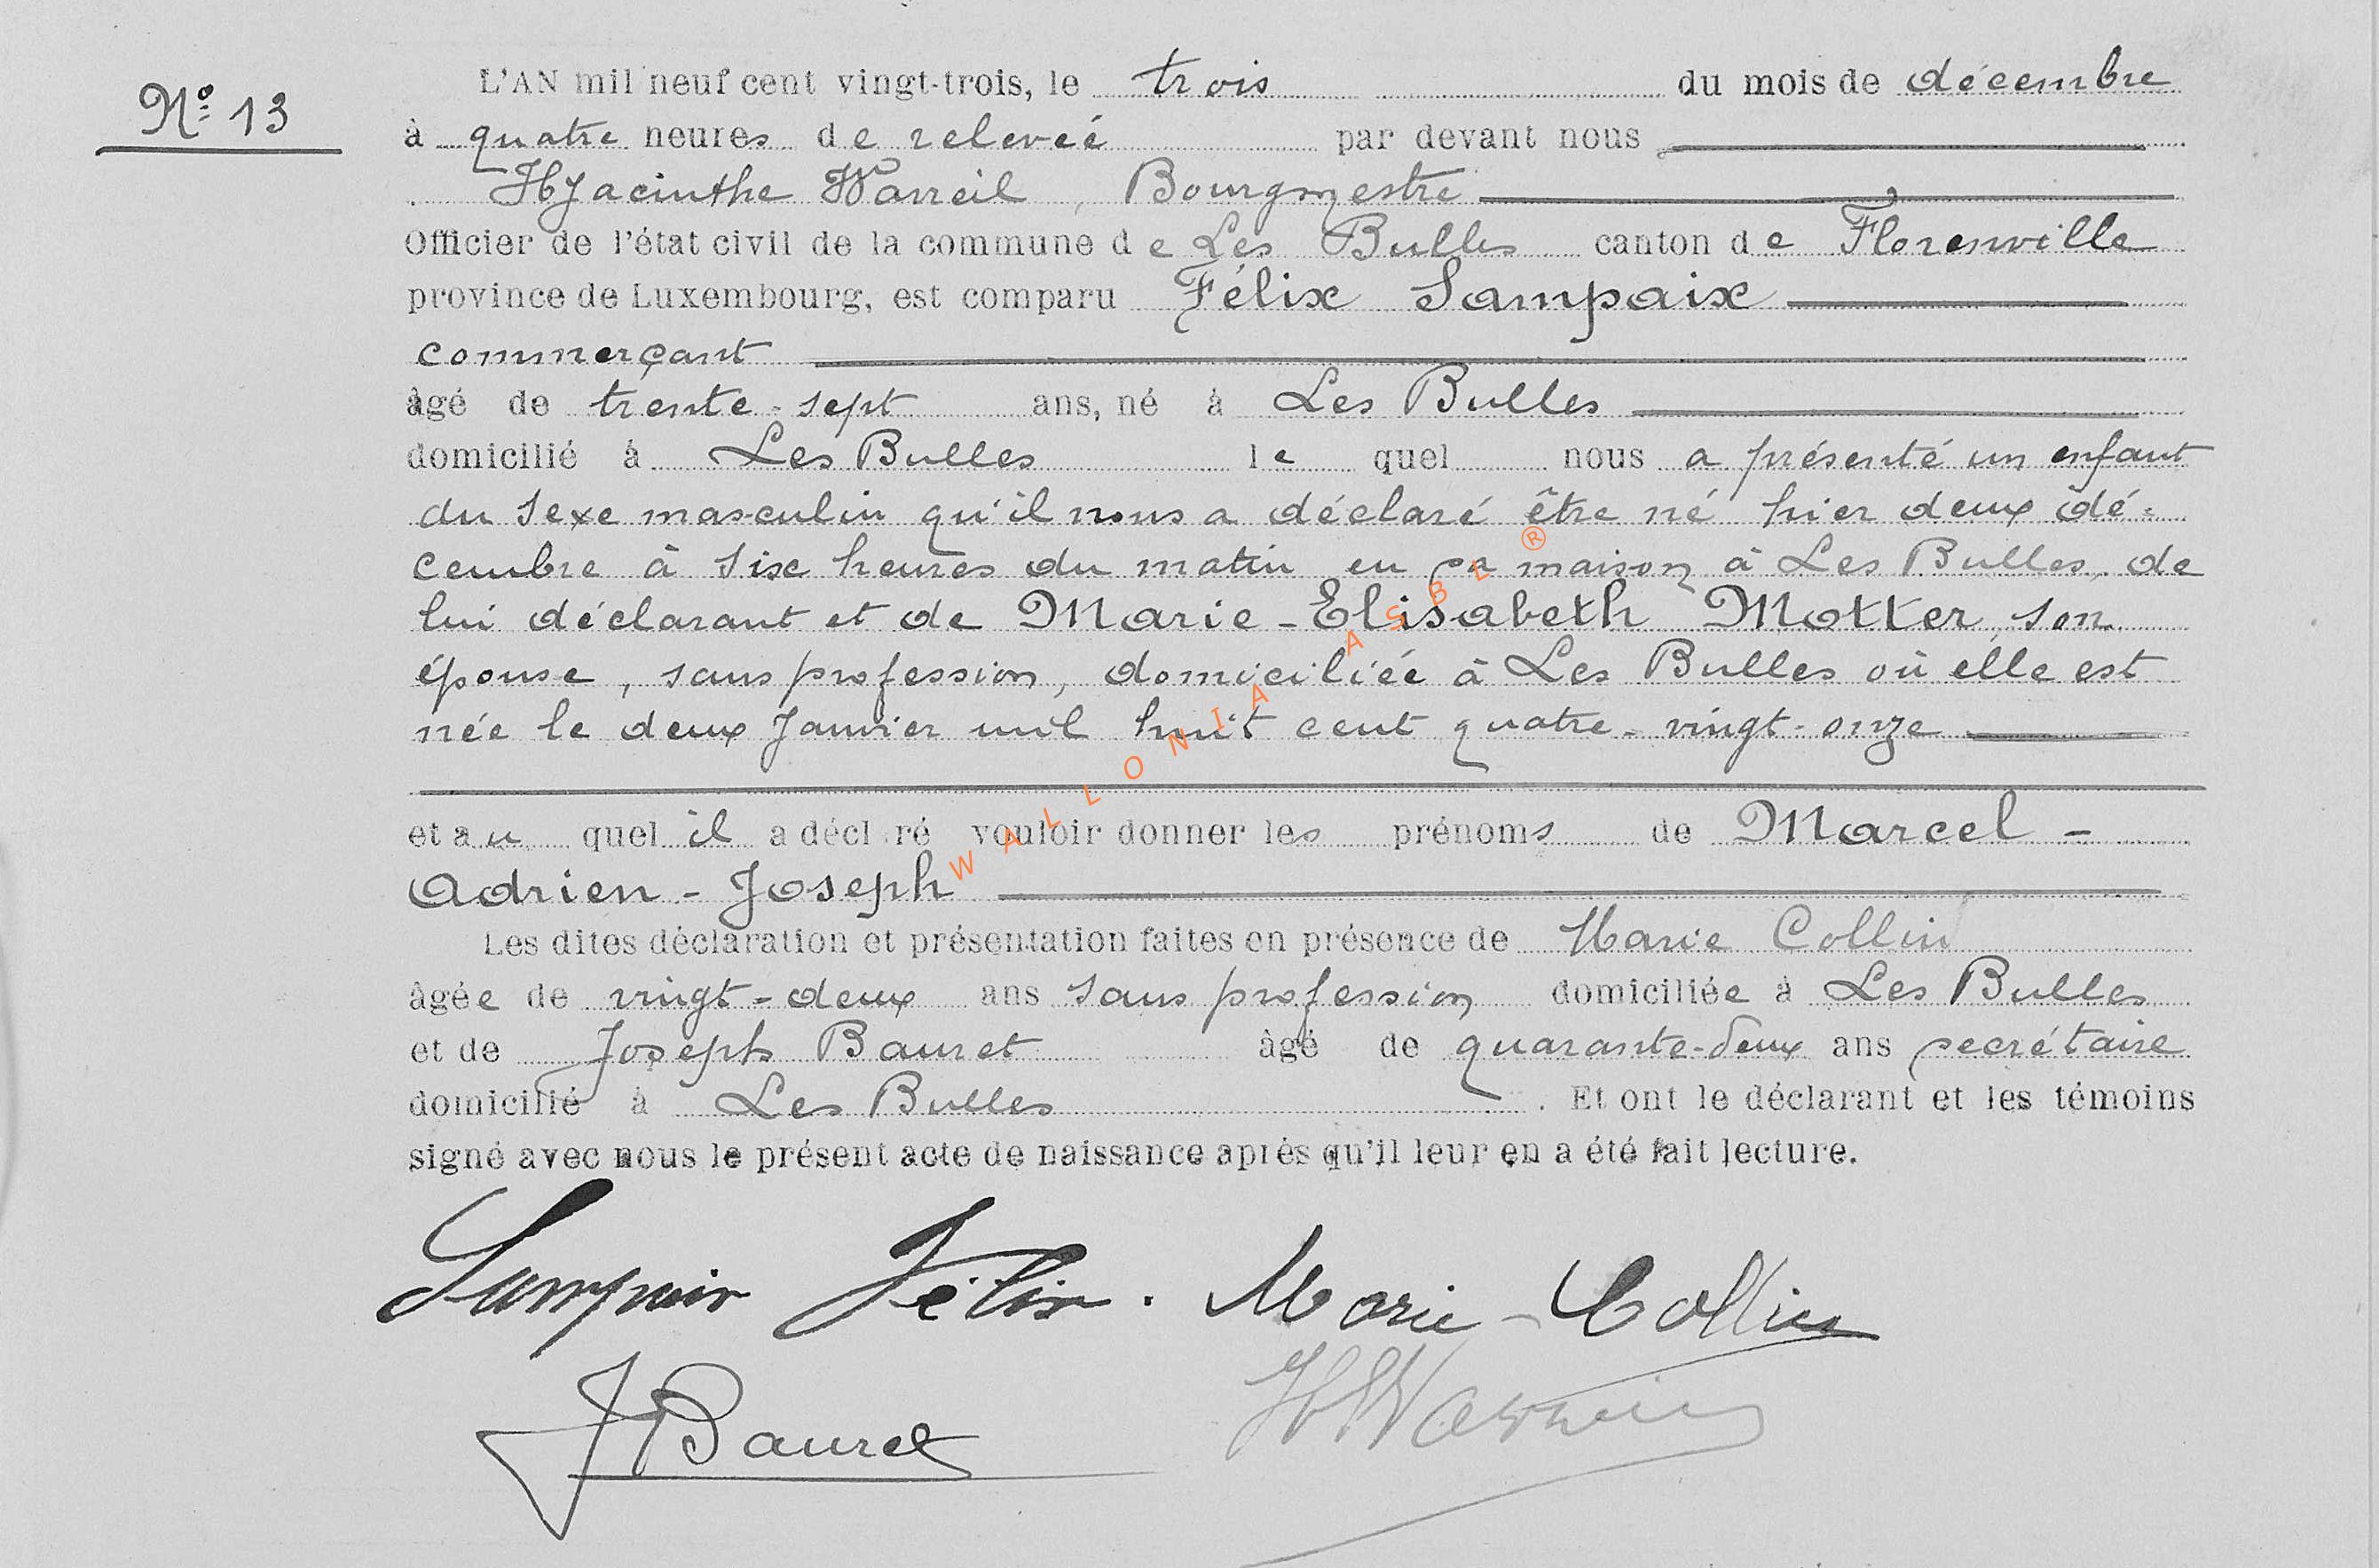 Nº 13
L'AN mil neuf cent vingt-trois, le trois du mois de décembre
à quatre heures de relevée par devant nous
Hyacinthe Warreil, Bourgmestre
Officier de l'état civil de la commune de Les Bulles canton de Florenville
province de Luxembourg, est comparu Félix Sampaix
commerçant
âgé de trente-sept ans, né à Les Bulles
domicilié à Les Bulles lequel nous a présenté un enfant
du sexe masculin qu'il nous a déclaré être né hier deux dé-
cembre à six heures du matin en sa maison à Les Bulles, de
lui déclarant et de Marie-Elisabeth Motter, son
épouse, sans profession, domiciliée à Les Bulles où elle est
née le deux Janvier mil huit cent quatre-vingt-onze
et au quel il a déclaré vouloir donner les prénoms de Marcel-
Adrien-Joseph
Les dites déclaration et présentation faites en présence de Marie Collin
âgée de vingt-deux ans sans profession domiciliée à Les Bulles
et de Joseph Bauret âgé de quarante-deux ans secrétaire
domicilié à Les Bulles. Et ont le déclarant et les témoins
signé avec nous le présent acte de naissance après qu'il leur en a été fait lecture.
Sampaix Félix. Marie-Collin
J Bauret
WALLONIA ASBL ®